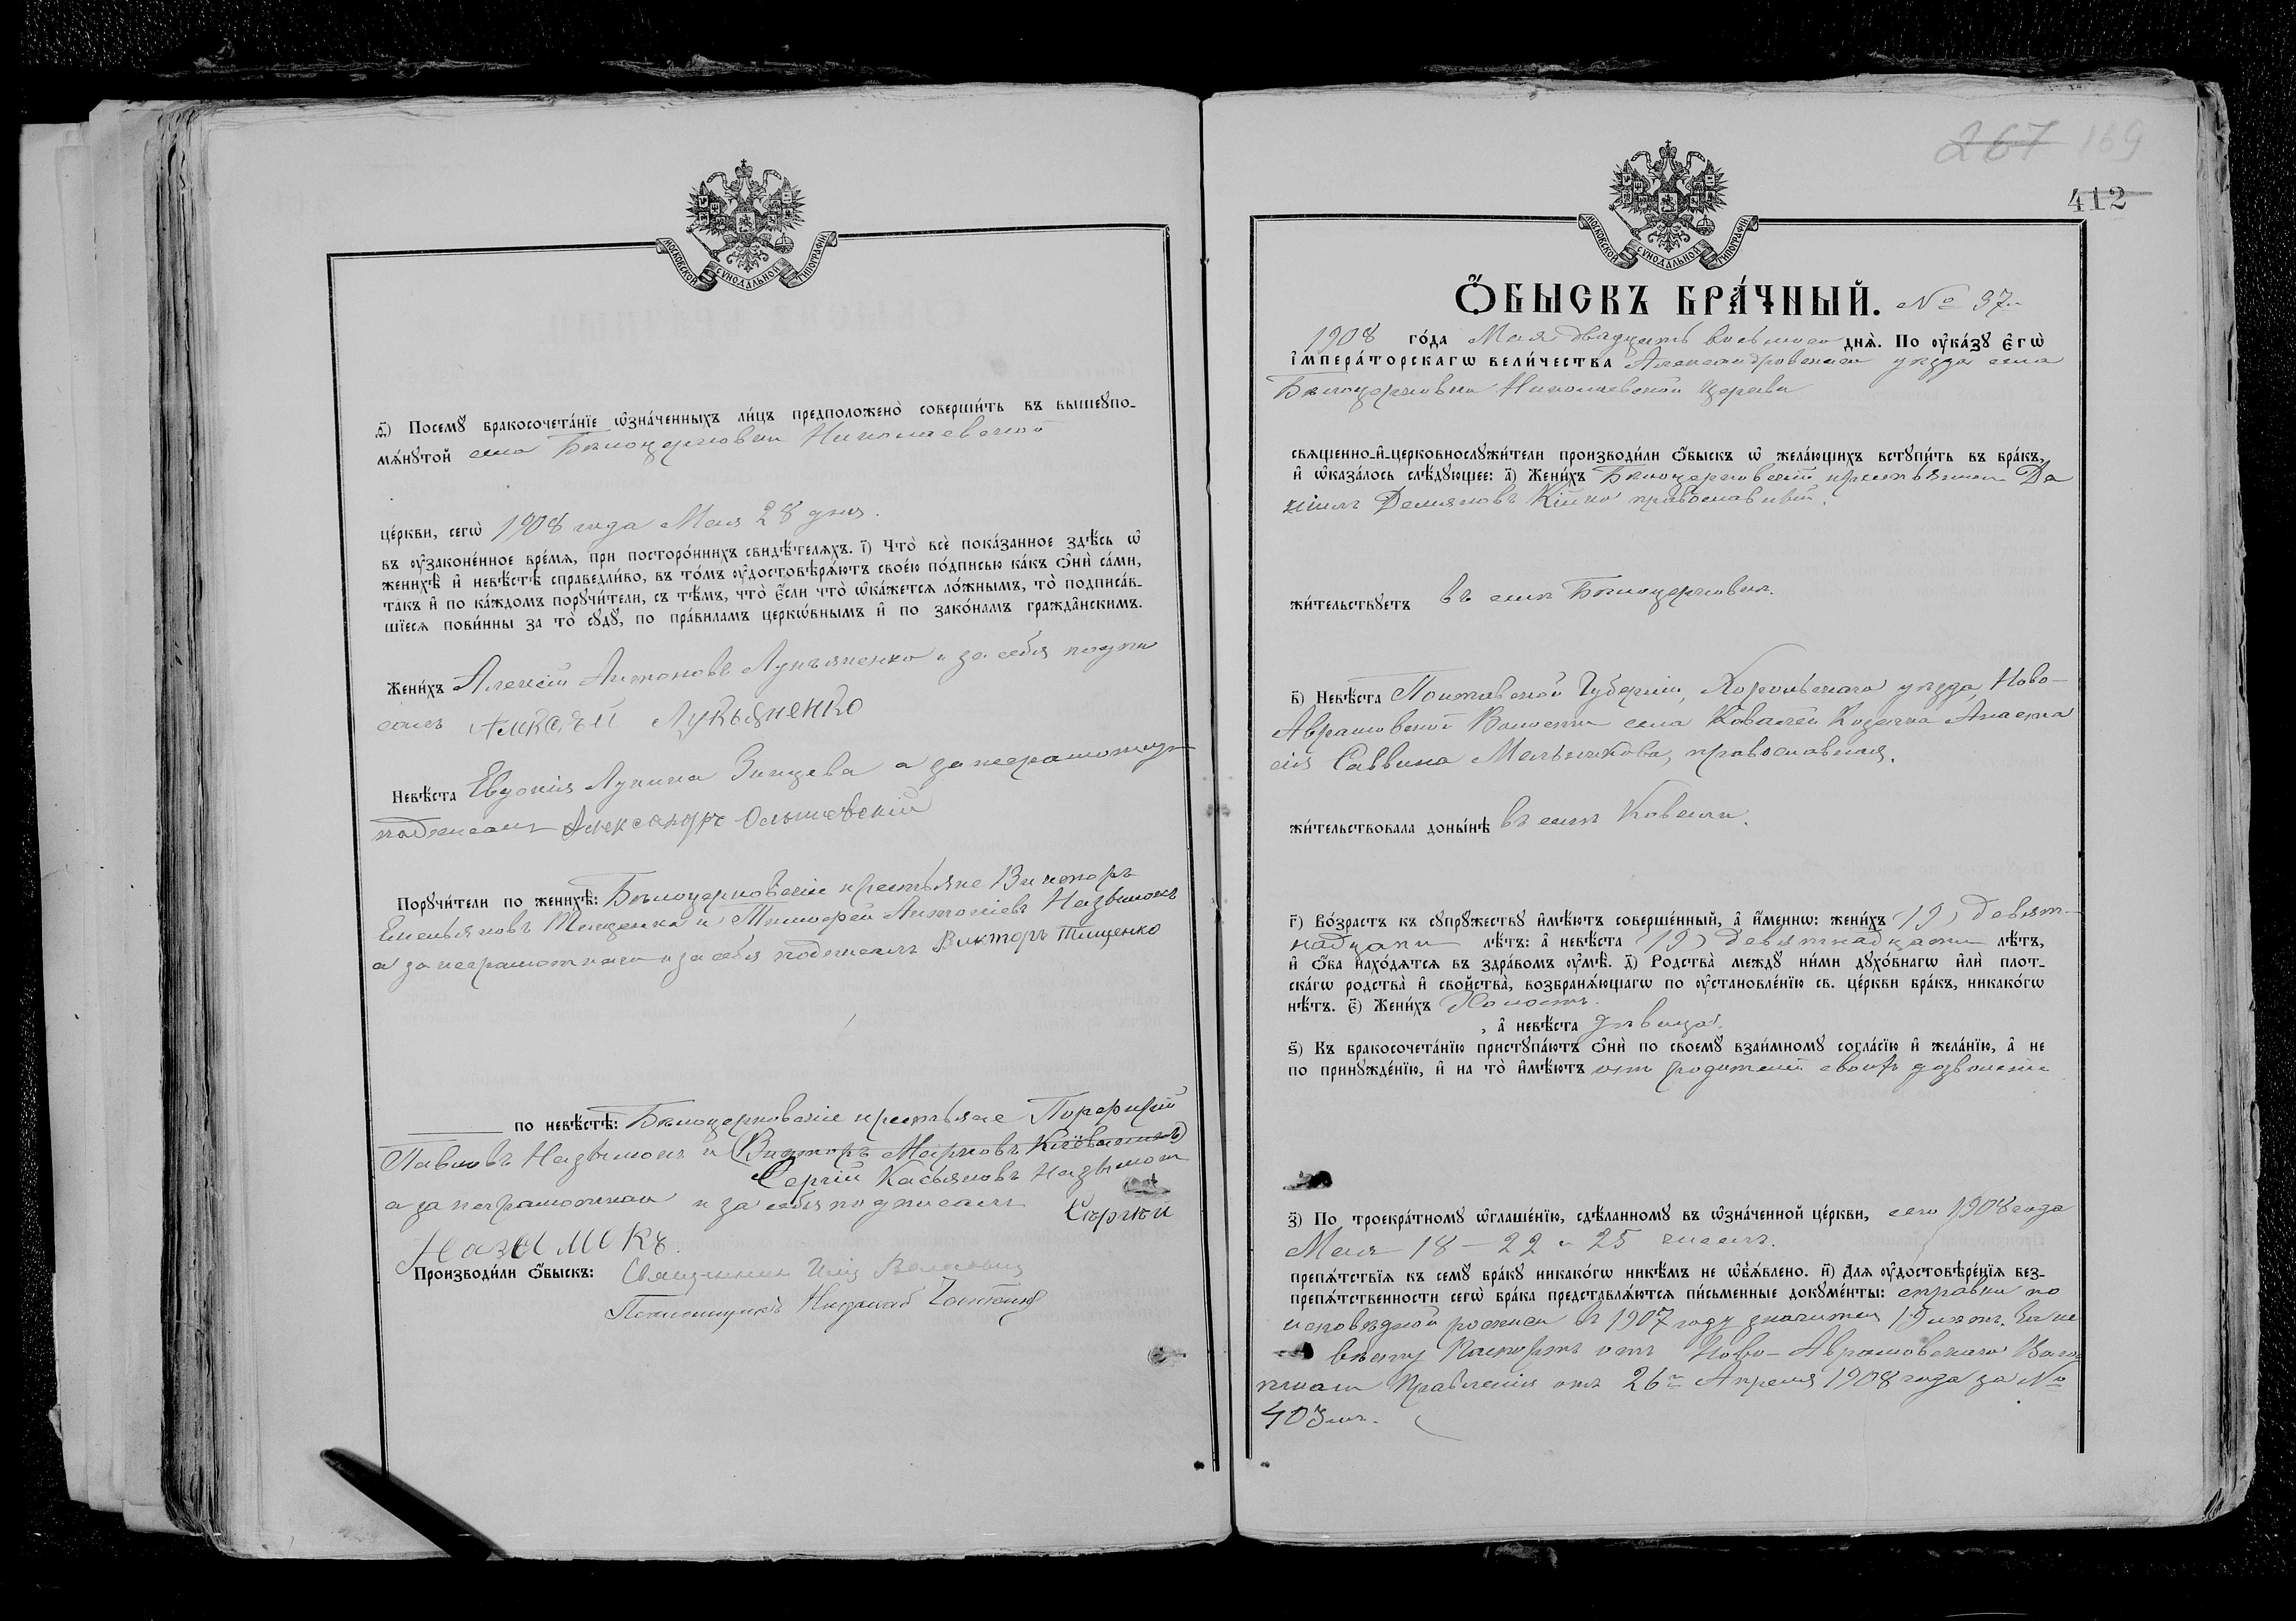 МОСКОВСКОЙ СѴНОДАЛЬНОЙ ТИПОГРАФІИ
ѳ҃) Посемꙋ бракосочета́нїе ѡ҆зна́ченныхъ ли́цъ предположено̀ соверши́ть въ вышеꙋпо-
мѧ́нꙋтой села Бѣлоцерковки Николаевской
це́ркви, сегѡ̀ 1908 года Мая 28 дня.
въ ᲂу҆зако́нееное вре́мѧ, при посторо́ннихъ свидѣ́телѧхъ. і҃) Что̀ всѐ пока́занное здѣ́сь ѡ҆
женихѣ̀ и҆ невѣ́стѣ справедли́во, въ то́мъ ᲂу҆достовѣрѧ́ютъ свое́ю по́дписью ка́къ ѻ҆нѝ са́ми,
та́къ и҆ по ка́ждомъ порꙋчи́тели, съ тѣ́мъ, что̀ є҆́сли что̀ ѡ҆ка́жетсѧ ло́жнымъ, то̀ подписа́в-
шїесѧ пови́нны за то̀ сꙋдꙋ̀, по пра́виламъ церкѡ́внымъ и҆ по зако́намъ гражда̑нскимъ.
Жени́хъ Алексій Антоновъ Лукьяненко и за себя подпи
салъ Алксѣй Лукьяненко
Невѣ́ста Евдокія Лукина Зинцева а за неграмотную
подписалъ Александръ Ольшевскій
Порꙋчи́тели по женихѣ̀: Бѣлоцерковскіе крестьяне Викторъ
Емельяновъ Тищенко и Тимофей Антоніевъ Назымокъ
а за неграмотнаго и за себя подписалъ Викторъ Тищенко
по невѣ́стѣ: Бѣлоцерковскіе крестьяне Порфирій
Павловъ Назымокъ и (Викторъ Марковъ)
Сергій Касьяновъ Назымокъ
а за неграмотнаго и за себя подписалъ Сергѣй
Назымокъ
Производи́ли ѻ҆́быскъ: Священникъ
Псаломщикъ
267 169
412
МОСКОВСКОЙ СѴНОДАЛЬНОЙ ТИПОГРАФІИ
Ѻ҆́БЫСКЪ БРА́ЧНЫЙ. № 37
1908 го́да Мая двадцать восьмого днѧ̀. По ᲂу҆ка́зꙋ є҆гѡ̀
і҆мпера́торскагѡ вели́чества Александровскаго уѣзда села
Бѣлоцерковки Николаевской Церкви
свѧщенно-и҆-церковнослꙋжи́тели производи́ли ѻ҆́быскъ ѡ҆ жела́ющихъ встꙋпи́ть въ бра́къ,
и҆ ѡ҆каза́лось слѣ́дꙋющее: а҃) Жени́хъ Бѣлоцерковскій крестьянинъ Да
ніилъ Демяновъ Кійко православный.
жи́тельствꙋетъ въ селѣ Бѣлоцерковкѣ.
в҃) Невѣ́ста Полтавской Губерніи, Хорольскаго уѣзда, Ново-
Аврамовской Волости села Ковалей Козачка Анаста
сія Саввина Мельникова, православная.
жи́тельствовала доны́нѣ въ селѣ Ковали.
г҃) Во́зрастъ къ сꙋпрꙋ́жествꙋ и҆мѣ́ютъ соверше́нный, а҆ и҆́меннѡ: жени́хъ 19) девят-
надцати лѣ́тъ: а҆ невѣ́ста 19) девятнадцати лѣ́тъ,
и҆ ѻ҆́ба нахо́дѧтсѧ въ здра́вомъ ᲂу҆мѣ̀. д҃) Родства̀ междꙋ ни́ми дꙋхо́внагѡ и҆лѝ плот-
ска́гѡ родства̀ и҆ сво́йства̀, возбранѧ́ющагѡ по ᲂу҆становле́нїю св. це́ркви бра́къ, никако́гѡ
нѣ́тъ. є҃) Жени́хъ Холостъ.
, а҆ невѣ́ста дѣвица.
ѕ҃) Къ бракосочета́нїю пристꙋпа́ютъ ѻ҆нѝ по своемꙋ̀ взаи́мномꙋ согла́сїю и҆ жела́нїю, а҆ не
по принꙋжде́нїю, и҆ на то̀ и҆мѣ́ютъ отъ родителей своихъ дозволеніе
з҃) По троекра́тномꙋ ѡ҆глаше́нїю, сдѣ́ланномꙋ въ ѡ҆зна́ченной це́ркви, сего 1908 года
Мая 18 - 22 и 25 чиселъ.
препѧ́тствїѧ къ семꙋ̀ бра́кꙋ никако́гѡ никѣ́мъ не ѡ҆б̾ѧ́влено. и҃) Для ᲂу҆достовѣре́нїѧ без-
препѧ́тственности сегѡ̀ бра́ка представлѧ́ютсѧ пи́сьменные докꙋме́нты: справки по
исповѣдной росписи въ 1907 году значится 19 лѣтъ. На не
вѣсту Паспортъ отъ Ново-Аврамовскаго Воло-
стнаго Правленія отъ 26го Апреля 1908 года за №
403мъ.